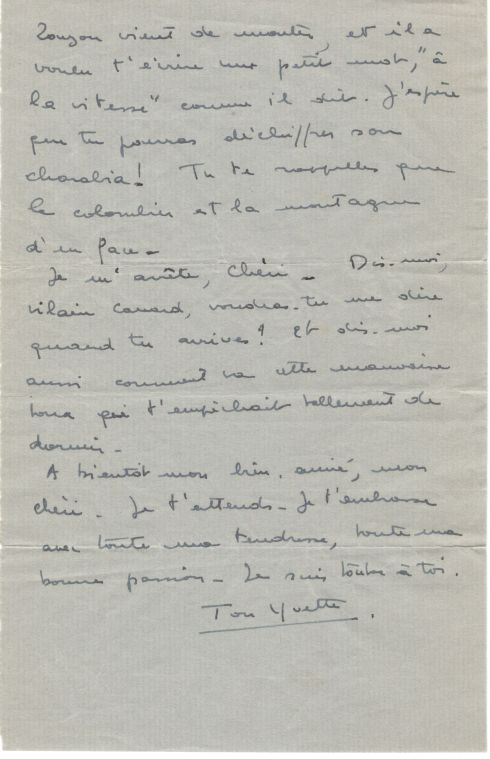 Zouzou vient de monter, et il a
voulu t'écrire un petit mot, "à
la vitesse" comme il dit. J'espère
que tu pourras déchiffrer son
charabia! Tu te rappelles que
le colombier est la montagne
d'en face –
Je m'arrête, chéri – Dis-moi,
vilain canard, voudras-tu me dire
quand tu arrives? Et dis-moi
aussi comment va cette mauvaise
toux qui t'empêchait tellement de
dormir –
A bientôt mon bien-aimé, mon
chéri – Je t'attends – Je t'embrasse
avec toute ma tendresse, toute ma
bonne passion – Je suis toute à toi.
Ton Yvette.